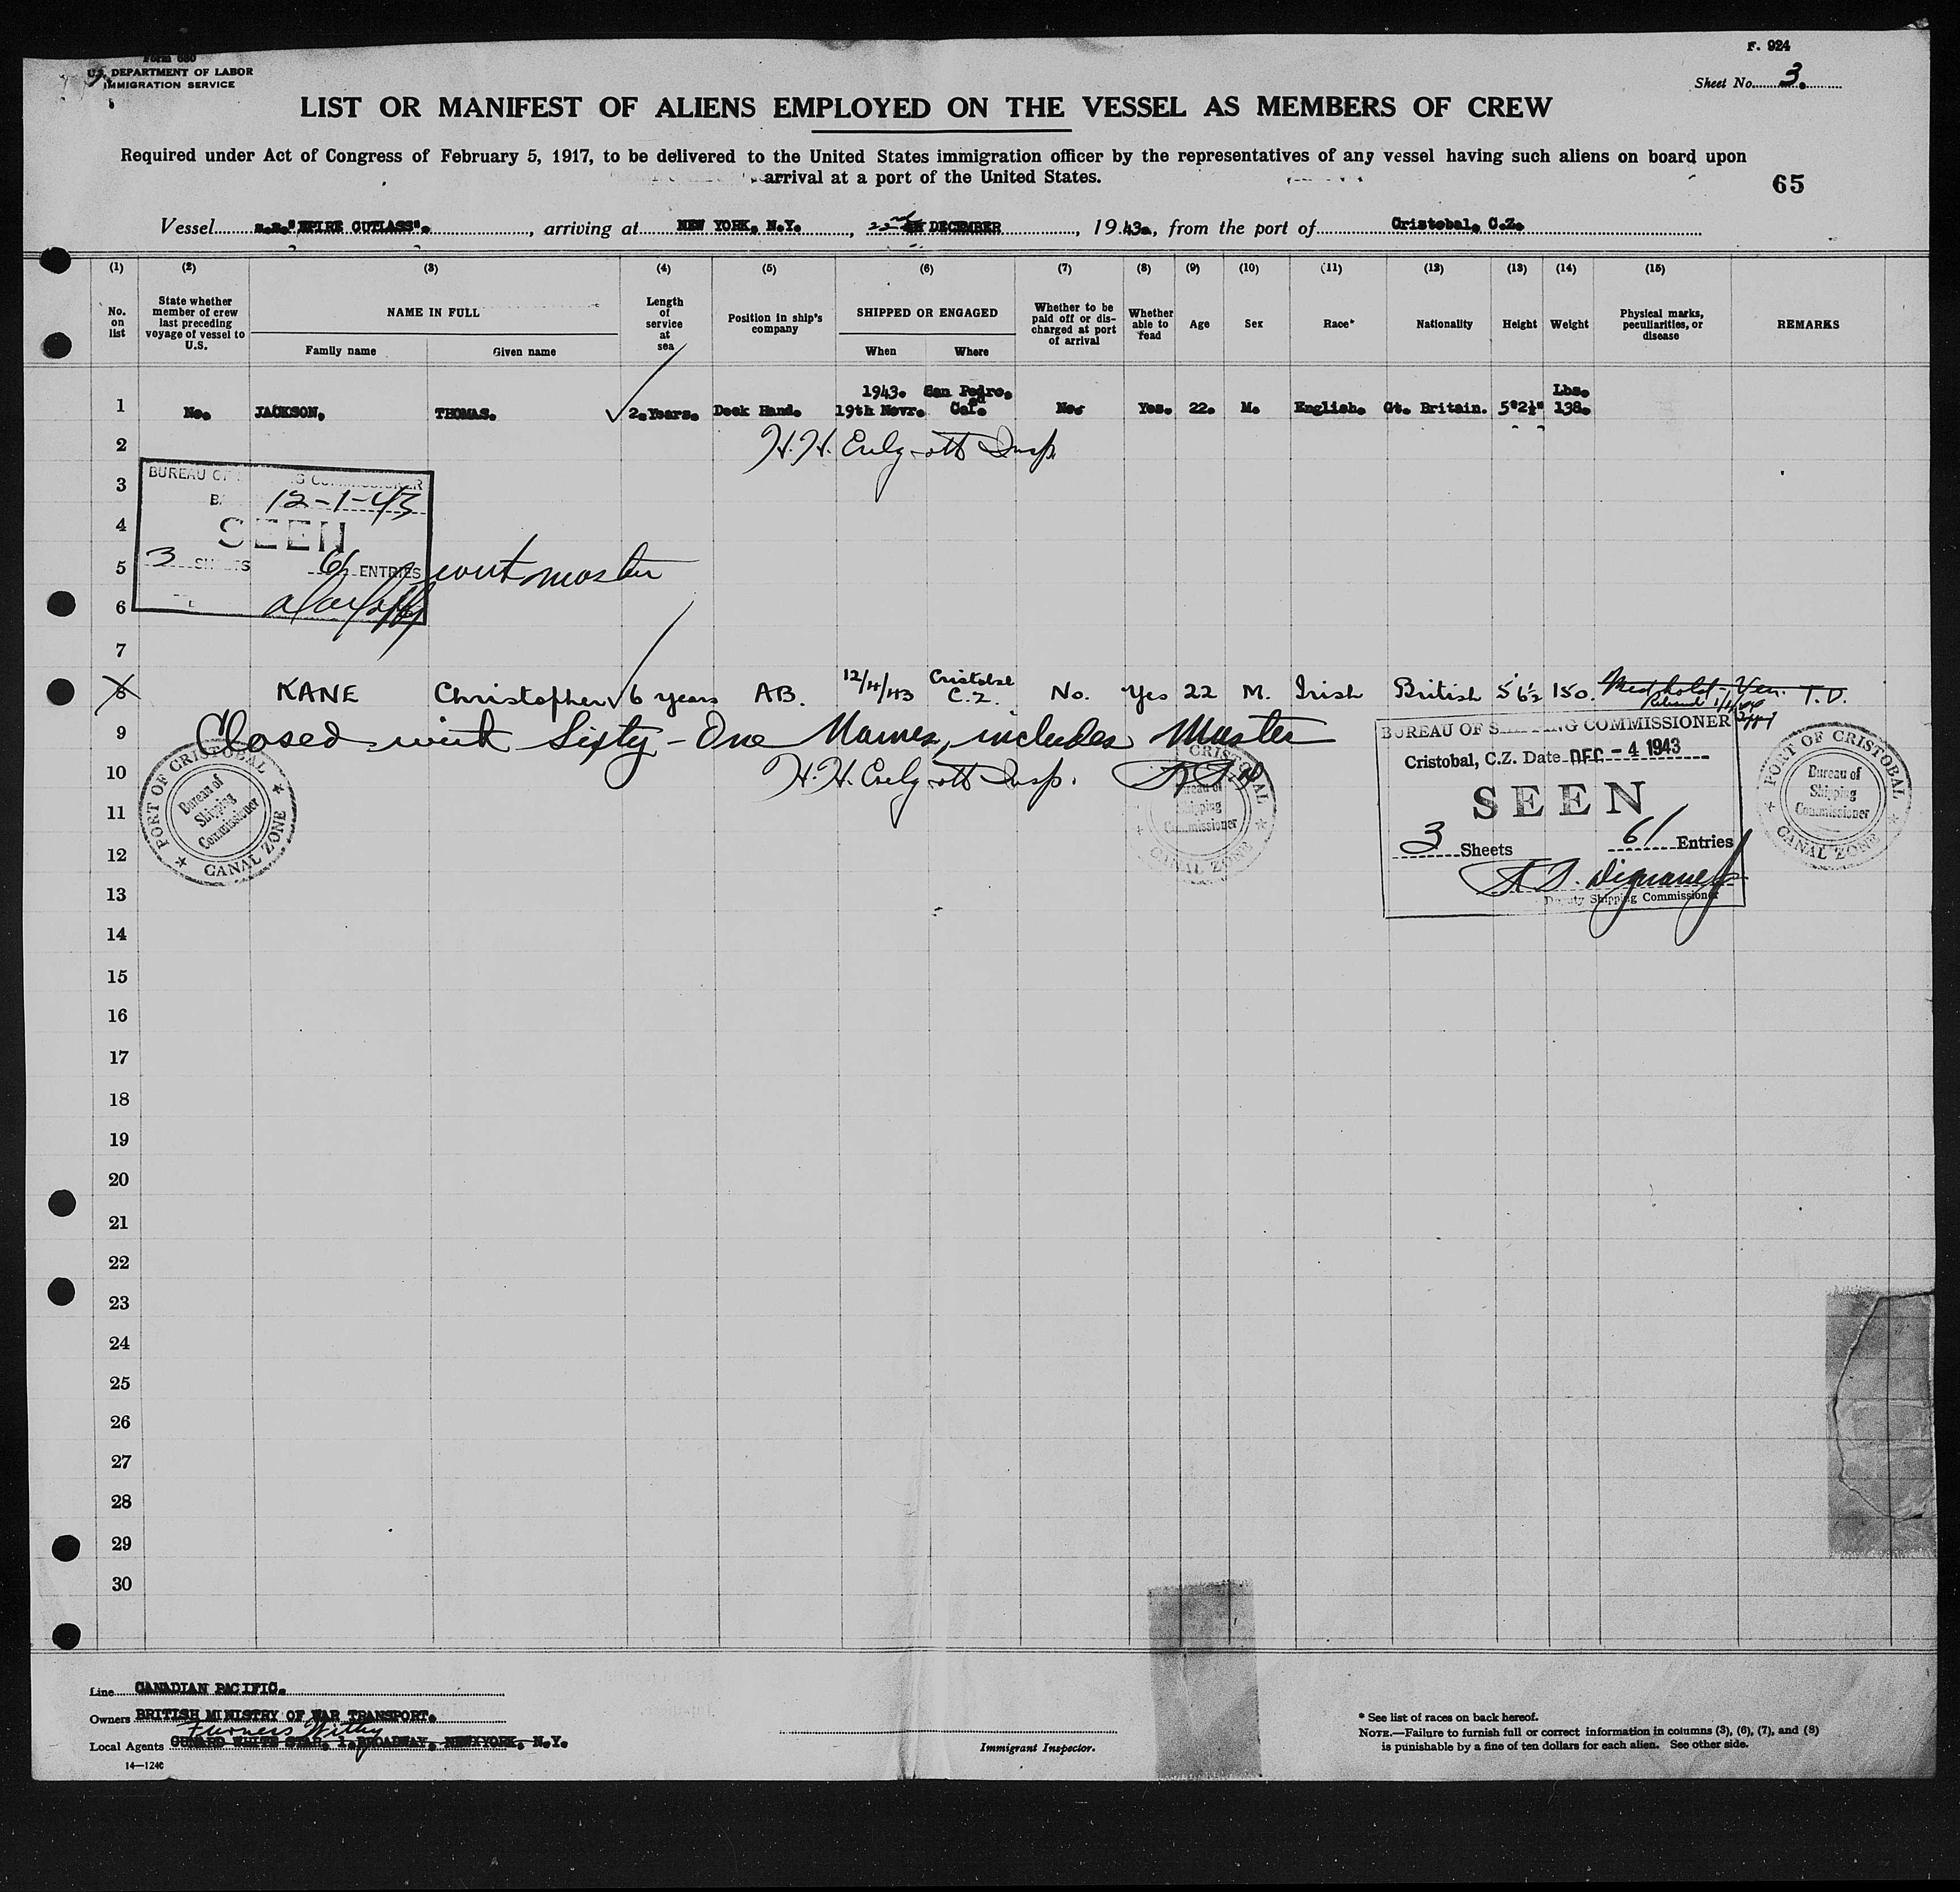 Form 680
U.S. DEPARTMENT OF LABOR
IMMIGRATION SERVICE
F. 924
Sheet No. 3.
LIST OR MANIFEST OF ALIENS EMPLOYED ON THE VESSEL AS MEMBERS OF CREW
Required under Act of Congress of February 5, 1917, to be delivered to the United States immigration officer by the representatives of any vessel having such aliens on board upon
arrival at a port of the United States.
65
Vessel s.s. "EMPIRE CUTLASS"., arriving at NEW YORK, N.Y., 22nd DECEMBER, 1943., from the port of Cristobal, C.Z.
(1) (2) (3) (4) (5) (6) (7) (8) (9) (10) (11) (12) (13) (14) (15)
No. on list
State whether member of crew last preceding voyage of vessel to U.S.
NAME IN FULL
Family name
Given name
Length of service at sea
Position in ship's company
SHIPPED OR ENGAGED
When
Where
Whether to be paid off or discharged at port of arrival
Whether able to read
Age
Sex
Race*
Nationality
Height
Weight
Physical marks, peculiarities, or disease
REMARKS
1 No. JACKSON. THOMAS. 2.Years. Deck Hand. 1943. 19th Novr. San Pedro. Cal. No. Yes. 22. M. English. Gt. Britain. 5'2½" Lbs. 138.
2 H.H. Insp.
3
4
5
6
7
BUREAU OF COMMISSIONER
12-1-43
SEEN
3 SHEETS 61 ENTRIES
master
8 KANE Christopher 6 years AB. 12/4/43 Cristobal C.Z. No. Yes 22 M. Irish British 5 6½ 150. Med hold - Ven. T.D.
9 Closed with Sixty-One Names, includes Master
10 H.H. Insp.
11
12
13
14
15
16
17
18
19
20
21
22
23
24
25
26
27
28
29
30
PORT OF CRISTOBAL
Bureau of
Shipping
Commissioner
CANAL ZONE
CRISTOBAL
Bureau of
Shipping
Commissioner
CANAL ZONE
BUREAU OF SHIPPING COMMISSIONER
Cristobal, C.Z. Date DEC - 4 1943
SEEN
3 Sheets 61 Entries
Deputy Shipping Commissioner
PORT OF CRISTOBAL
Bureau of
Shipping
Commissioner
CANAL ZONE
Line CANADIAN PACIFIC.
Owners BRITISH MINISTRY OF WAR TRANSPORT.
Furness Withy
Local Agents CUNARD WHITE STAR, 1.BROADWAY, NEWYORK, N.Y.
14—1240
Immigrant Inspector.
* See list of races on back hereof.
NOTE.—Failure to furnish full or correct information in columns (3), (6), (7), and (8)
is punishable by a fine of ten dollars for each alien. See other side.